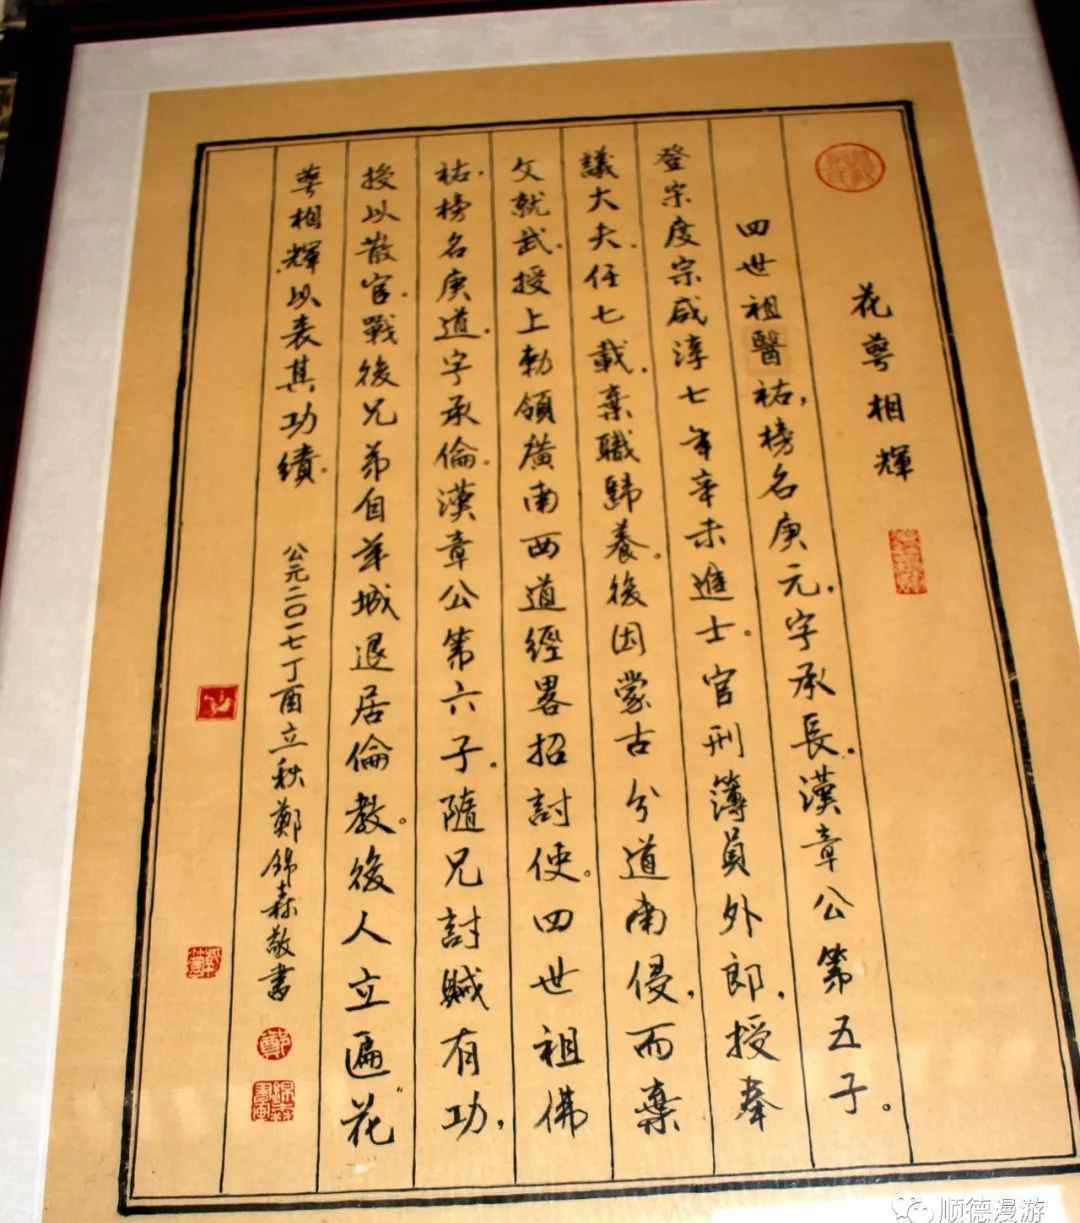 花萼相輝
四世祖醫祐,榜名庚元,字承長。漢章公第五子。
登宗度宗咸淳七年辛未進士。官刑簿員外郎,授奉
議大夫。任七載,棄職歸養。後因蒙古分道南侵,而棄
文就武。授上勅領廣南西道經畧招討使。四世祖佛
祐,榜名庚道。字承倫。漢章公第六子。隨兄討賊有功,
授以散官。戰後兄弟自羊城退居倫教。後人立匾“花
萼相輝”以表其功績。
公元二〇一七丁酉立秋鄭錦森敬書
顺德漫游